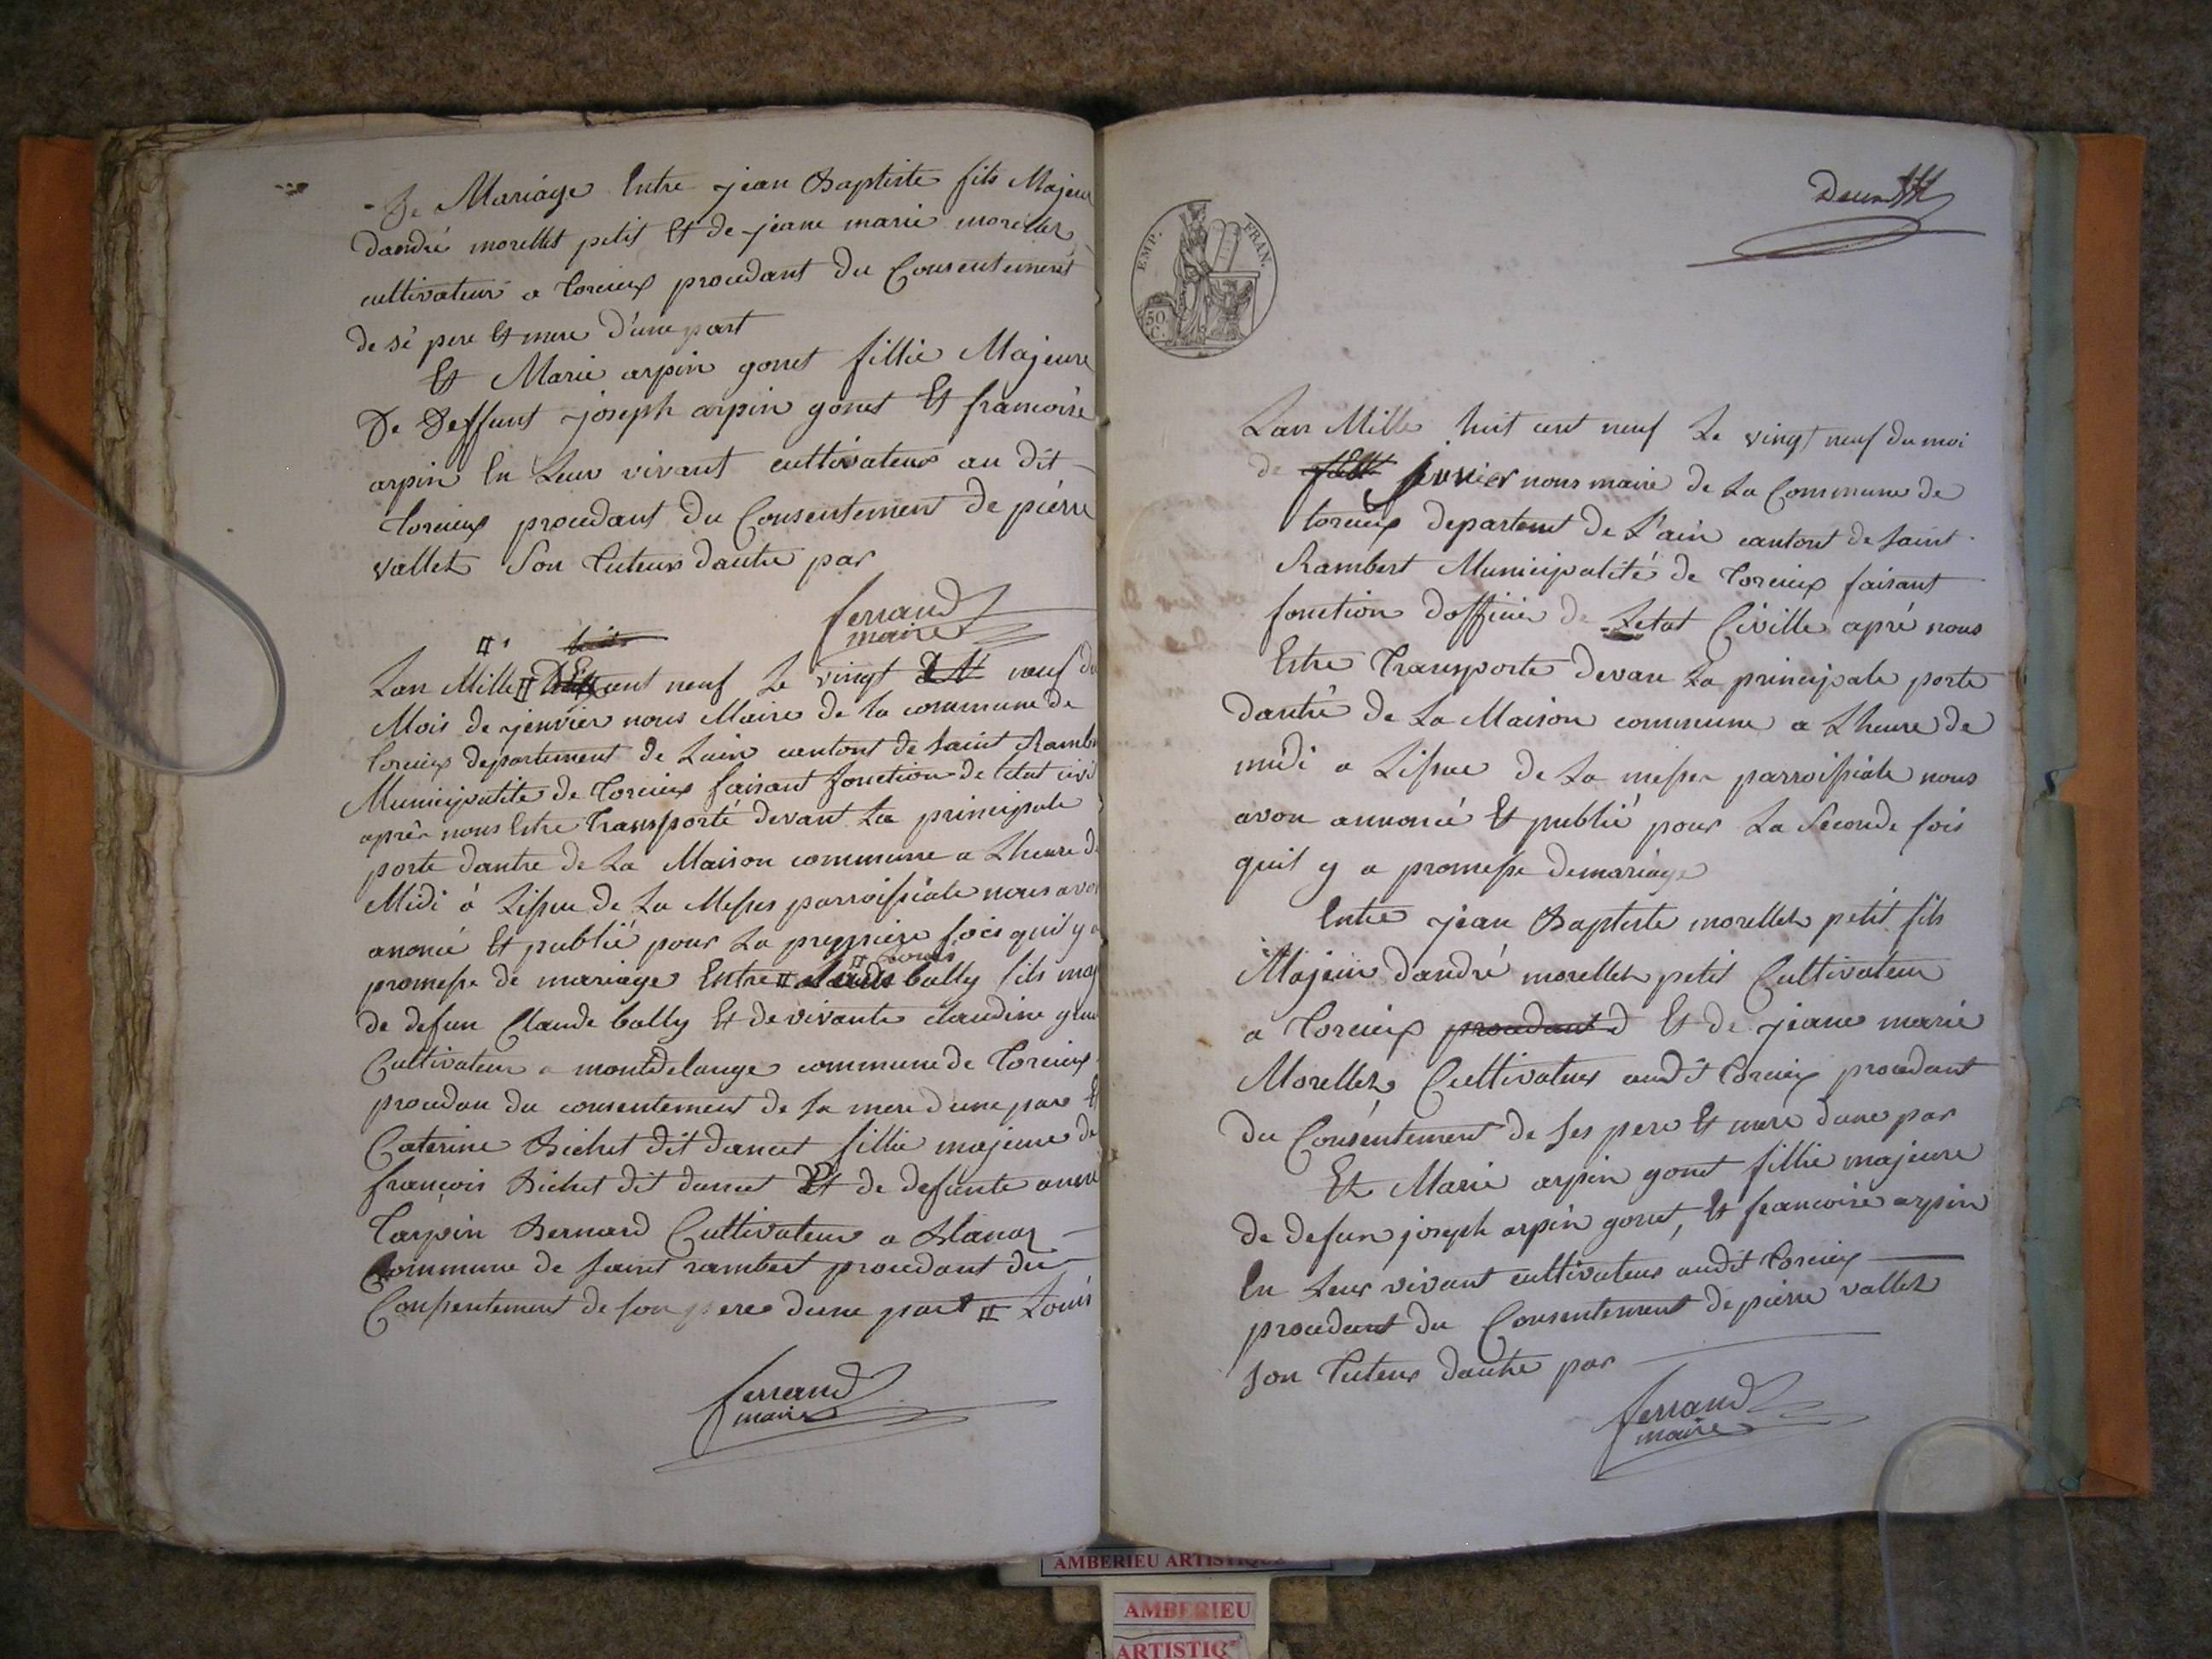 De Mariage Entre jean Baptiste fils Majeur
dandré morellet petit Et de jeane marie morellet
cultivateur a Torcieux procedant du Consentement
de sé pere Et mere d'une part
Et Marie arpin gonet fillie Majeure
De Deffunt joseph arpin gonet Et francoise
arpin En Leur vivant cultivateur au dit
Torcieux procedant du Consentement de piérre
vallet Son Tuteur dautre par
ferrand
maire
huit
Lan Mille cent neuf Le vingt neuf du
Mois de jenvier nous Maire de la commune de
Torcieux departement de Lain cantont de Saint Rambert
Municipalité de Torcieux faisant fonction de letat civil
aprêr nous Entre Transporté devant La principale
porte dantre de La Maison commune a Lheure de
Midi á Lissue de La Messes parroissiale nous avon
anoncé Et publié pour La premiere fois quil y a
Louis
promesse de mariage Entre bally fils maj
de defun Claude bally Et de vivante claudine
Cultivateur a montdelange commune de Torcieux
procedan du consentement de sa mere dune par Et
Caterine Bichet dit dancet fillie majeure de
françois Bichet dit dancet Et de defunte anne
Tarpin Bernard Cultivateur a Blanaz
Commune de Saint rambert procedant du
Conssentement de son pere dune part Louis
ferrand
maire
EMP. FRAN.
50 C.
Lan Mille huit cent neuf Le vingt neuf du moi
de jenvier nous maire de La Commune de
torcieux departemt de L'ain cantont de Saint
Rambert Municipalité de Torcieux faisant
fonction dofficier de Letat Civille apré nous
Entre Transporte devan La principale porte
dantré de La Maison commune a Lheure de
midi a Lissue de La messer parroissiale nous
avon annoncé Et publié pour La Seconde fois
quil y a promesse demariage
Entre jean Baptiste morellet petit fils
Majeur dandré morellet petit Cultivateur
a Torcieux procedant d Et de jeane marie
Morellet, Cultivateur audit Torcieux procedant
du Consentement de Ses pere Et mere dune par
Et Marie arpin gonet fillie majeure
de defun joseph arpin gonet, Et francoise arpin
En Leur vivant cultivateur audit Torcieux
procedant du Consentement de pierre vallet
Son Tuteur dautre par
ferrand
maire
AMBERIEU ARTISTIQUE
AMBERIEU
ARTISTIQ